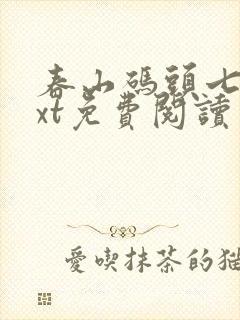 春山碼頭七
xt免費閱讀
愛喫抹茶的猫